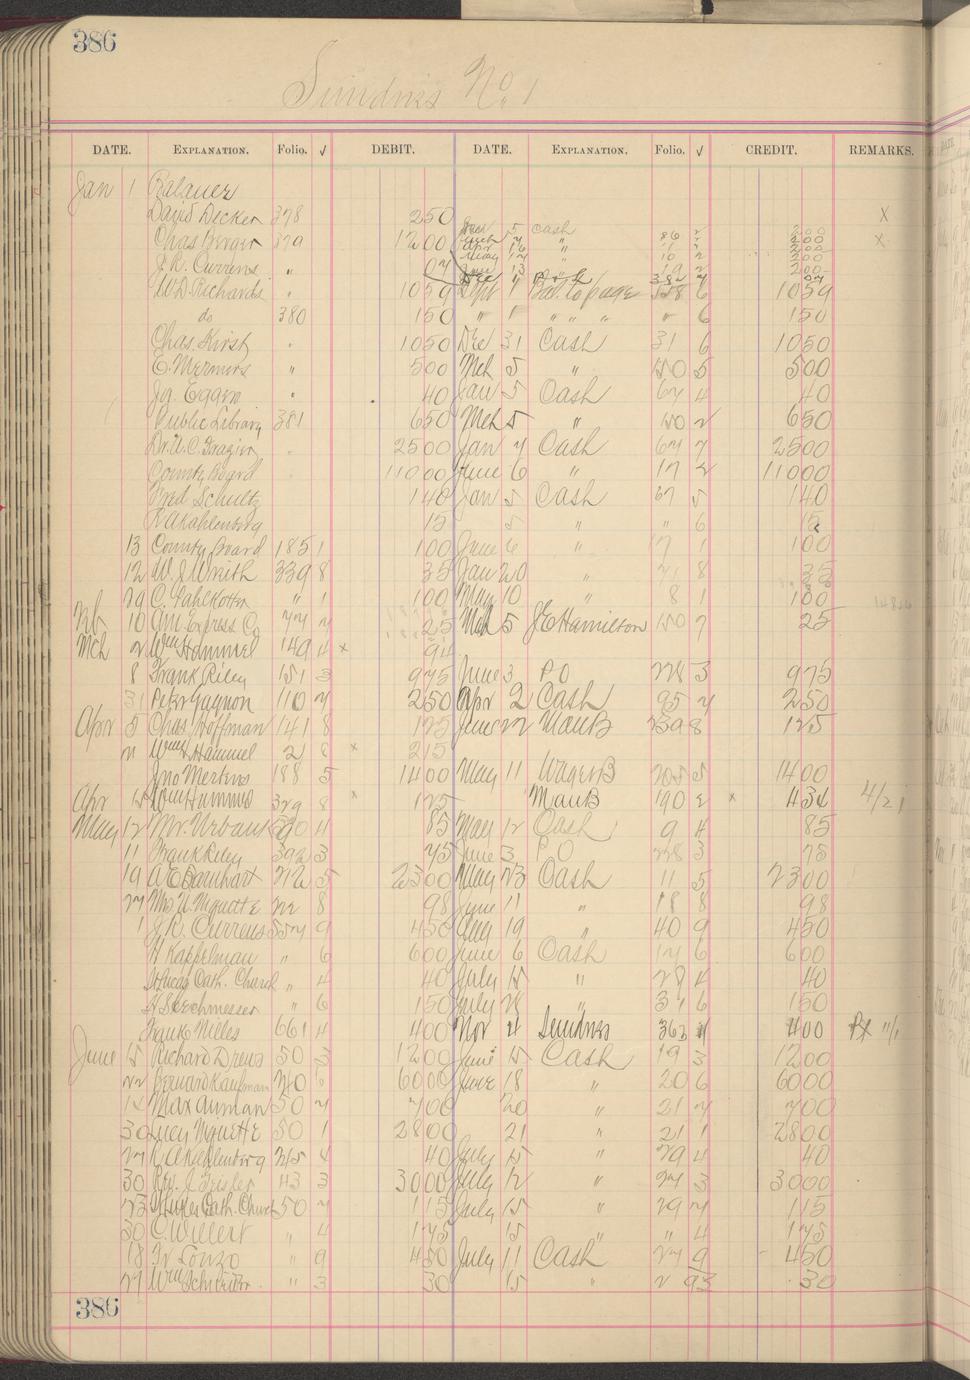 386
Sundries No. 1
DATE. EXPLANATION. Folio. √ DEBIT. DATE. EXPLANATION. Folio. √ CREDIT. REMARKS.
Jan 1 Balance
David Decker 378 250 x
Cash 200
Chas Berger 379 1200 " 86 200 x
" 200
" 10 200
J.R. Currens " 07 13 19 200
W.D. Richards " 1059 Sept 1 Bal. to page 6 1059
do 380 150 " 1 " " " " 6 150
Chas. Kirst " 1050 Dec 31 Cash 31 6 1050
E. Mermirs " 500 Mch 5 " 150 5 500
Jg. Eggers " 40 Jan 5 Cash 67 4 40
Public Library 381 650 Mch 5 " 150 2 650
Dr. A.C. Frazier " 2500 Jan 7 Cash 67 7 2500
County Board " 11000 June 6 " 17 2 11000
Fred Schultz 140 Jan 5 Cash 67 5 140
R A Kahlenberg 15 5 " " 6 15
13 County Board 185 1 100 June 6 " 17 1 100
12 W.J. Wrieth 339 8 35 Jan 20 " 71 8 35
29 C. Fahlkotter " 1 100 May 10 " 8 1 100
Feb 10 Am Express Co 77 7 25 Mch 5 J E Hamilton 150 7 25
Mch 2 Wm Hammel 149 4 x 94
8 Frank Riley 151 3 975 June 3 P O 228 3 975
31 Peter Gagnon 110 7 250 Apr 2 Cash 95 7 250
Apr 5 Chas Hoffman 141 8 125 June 22 ManB 239 8 125
Wm Hammel 21 8 x 215
Jno Mertens 188 5 1400 May 11 WagesB 205 5 1400
Apr 15 Wm Hammel 329 8 x 125 ManB 190 2 x 434 4/21
May 12 Mr. Urban 390 4 85 May 12 Cash 9 4 85
11 Frank Riley 392 3 75 June 3 P O 228 3 75
19 A E Barnhart 212 5 2300 May 23 Cash 11 5 2300
27 Mrs U. Mquette 22 8 98 June 11 " 18 8 98
1 J.R. Currens 557 9 450 Aug 19 " 40 9 450
H Kappelman " 6 600 June 6 Cash 17 6 600
St Lucas Cath. Church " 4 40 July 15 " 29 4 40
A Stechmesser " 6 150 July 28 " 31 6 150
Frank Nilles 661 4 400 Nov 4 Sundries 363 4 400
June 15 Richard Drews 50 3 1200 June 15 Cash 19 3 1200
22 Bernard Kaufman 240 6 6000 June 18 " 20 6 6000
14 Max Auman 50 7 700 20 " 21 7 700
30 Lucy Mquette 50 1 2800 21 " 21 1 2800
27 R A Kahlenberg 245 4 40 July 15 " 29 4 40
30 Rev. J. Geisler 43 3 3000 July 12 " 27 3 3000
23 St Lukes Cath. Church 50 7 115 July 15 " 29 7 115
30 C. Willert " 4 175 15 " " 4 175
18 Fr Lonzo " 9 450 July 11 Cash 27 9 450
27 Wm Schroeder " 3 30 15 " 2 93 30
386